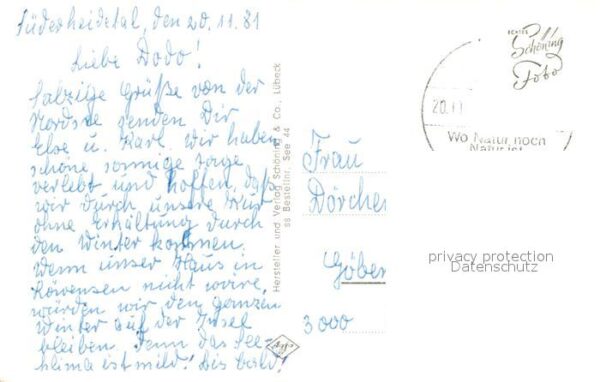 Süderheidetal, den 20.11.81
Liebe Dodo!
Salzige Grüße von der
Nordsee senden Dir
Else u. Karl. Wir haben
schöne sonnige Tage
verlebt und hoffen, daß
wir durch unsere Kur
ohne Erkältung durch
den Winter kommen.
Wenn unser Haus in
nicht wäre,
würden wir den ganzen
Winter auf der Insel
bleiben. Denn das See-
klima ist mild! Bis bald!
Hersteller und Verlag Schöning & Co., Lübeck
ss Bestellnr. See 44
ECHTES
Schöning
Foto
20.11
Wo Natur noch
Natur ist
Frau
Dörche
Göbe
3000
privacy protection
Datenschutz